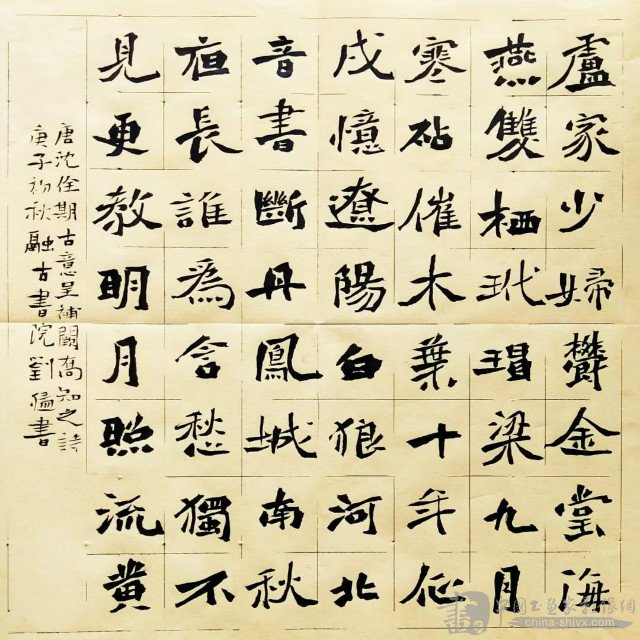 盧家少婦鬱金堂海
燕雙栖玳瑁梁九月
寒砧催木葉十年征
戍憶遼陽白狼河北
音書斷丹鳳城南秋
夜長誰為含愁獨不
見更教明月照流黃
唐沈佺期古意呈補闕喬知之詩
庚子初秋融古書院劉書
china-shivx.com